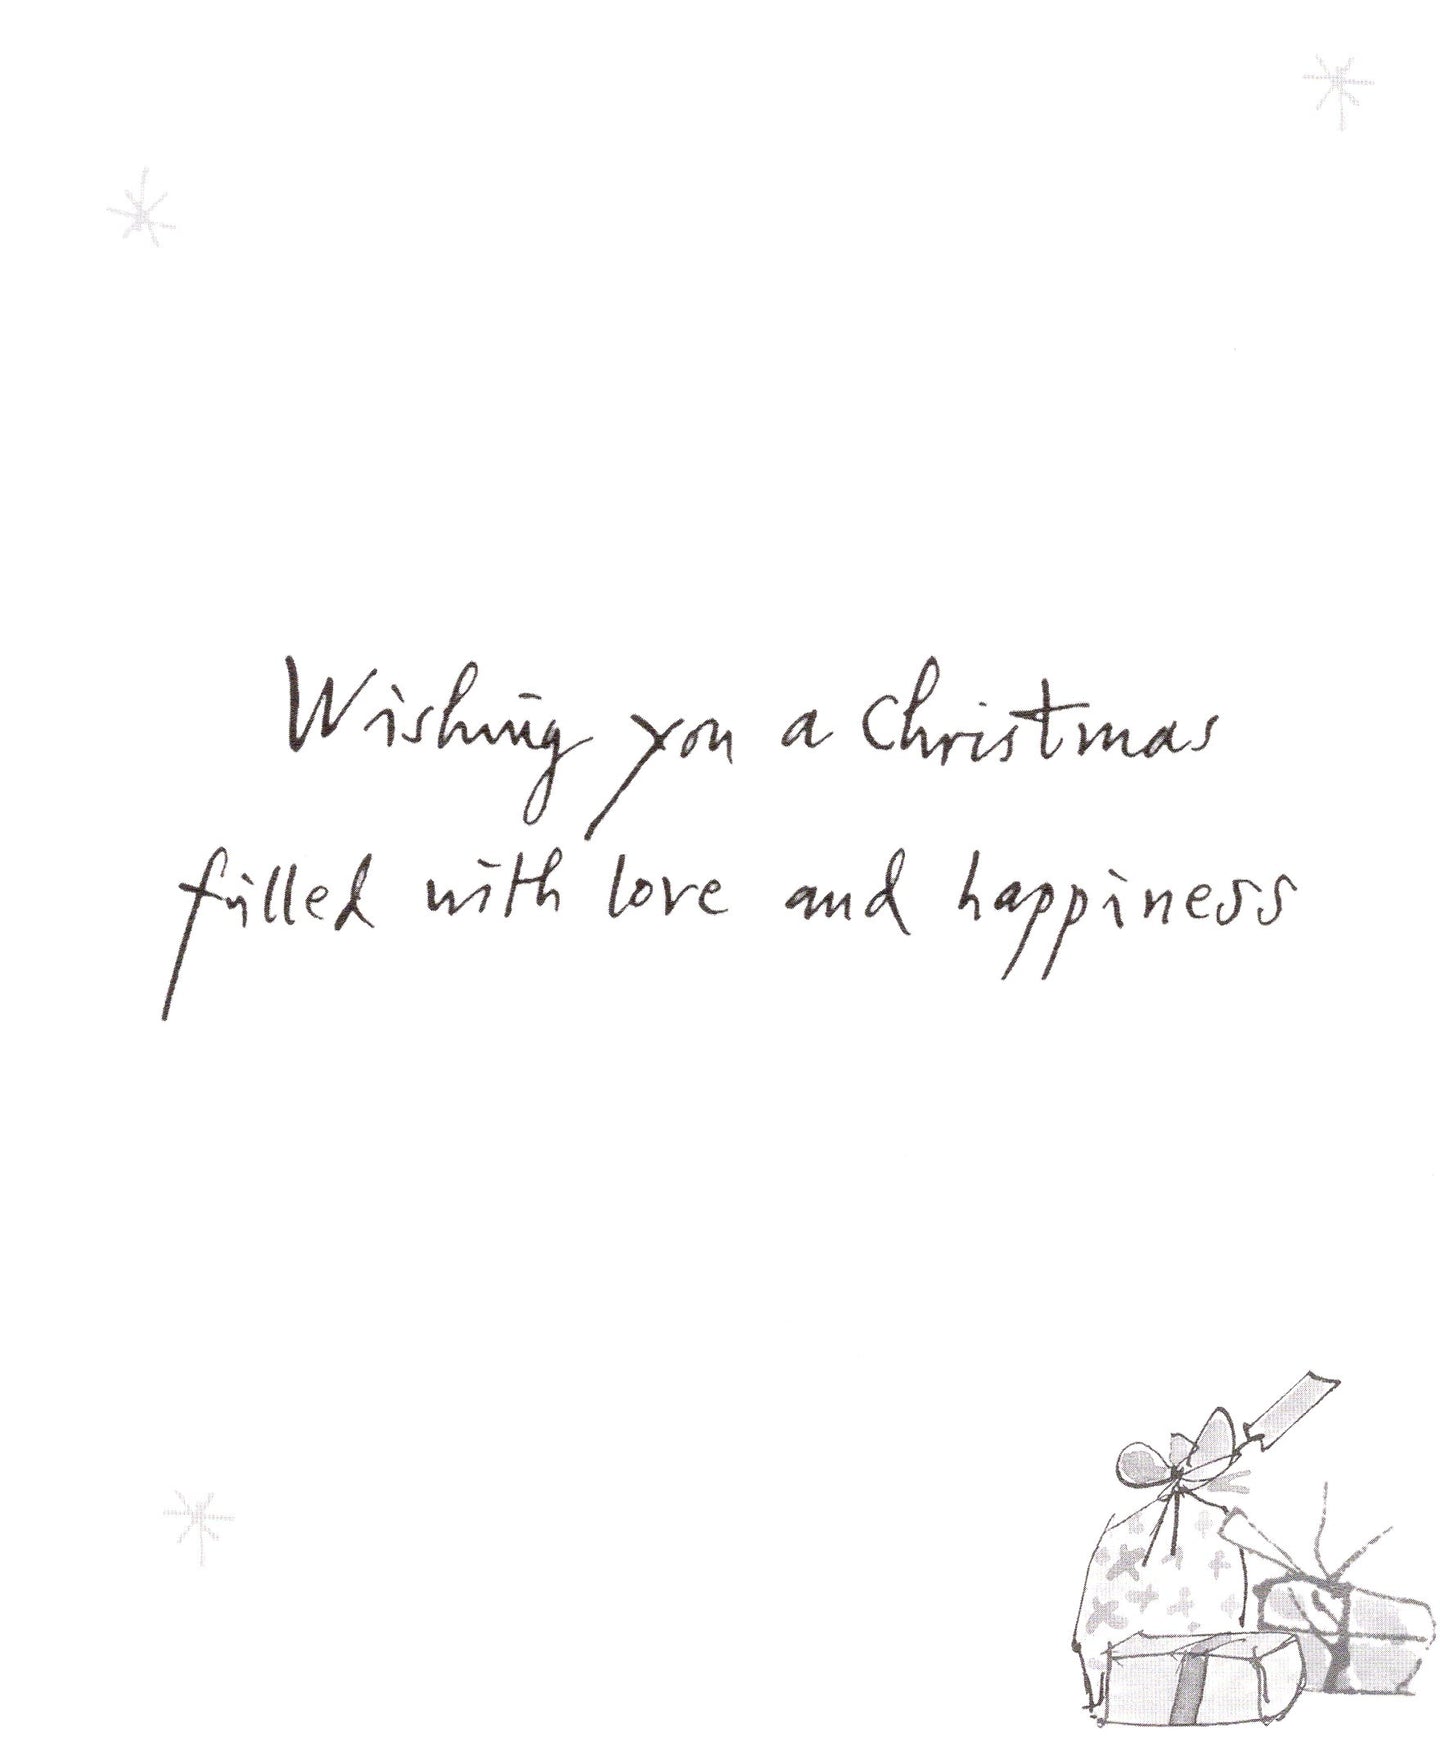 Wishing you a Christmas
filled with love and happiness